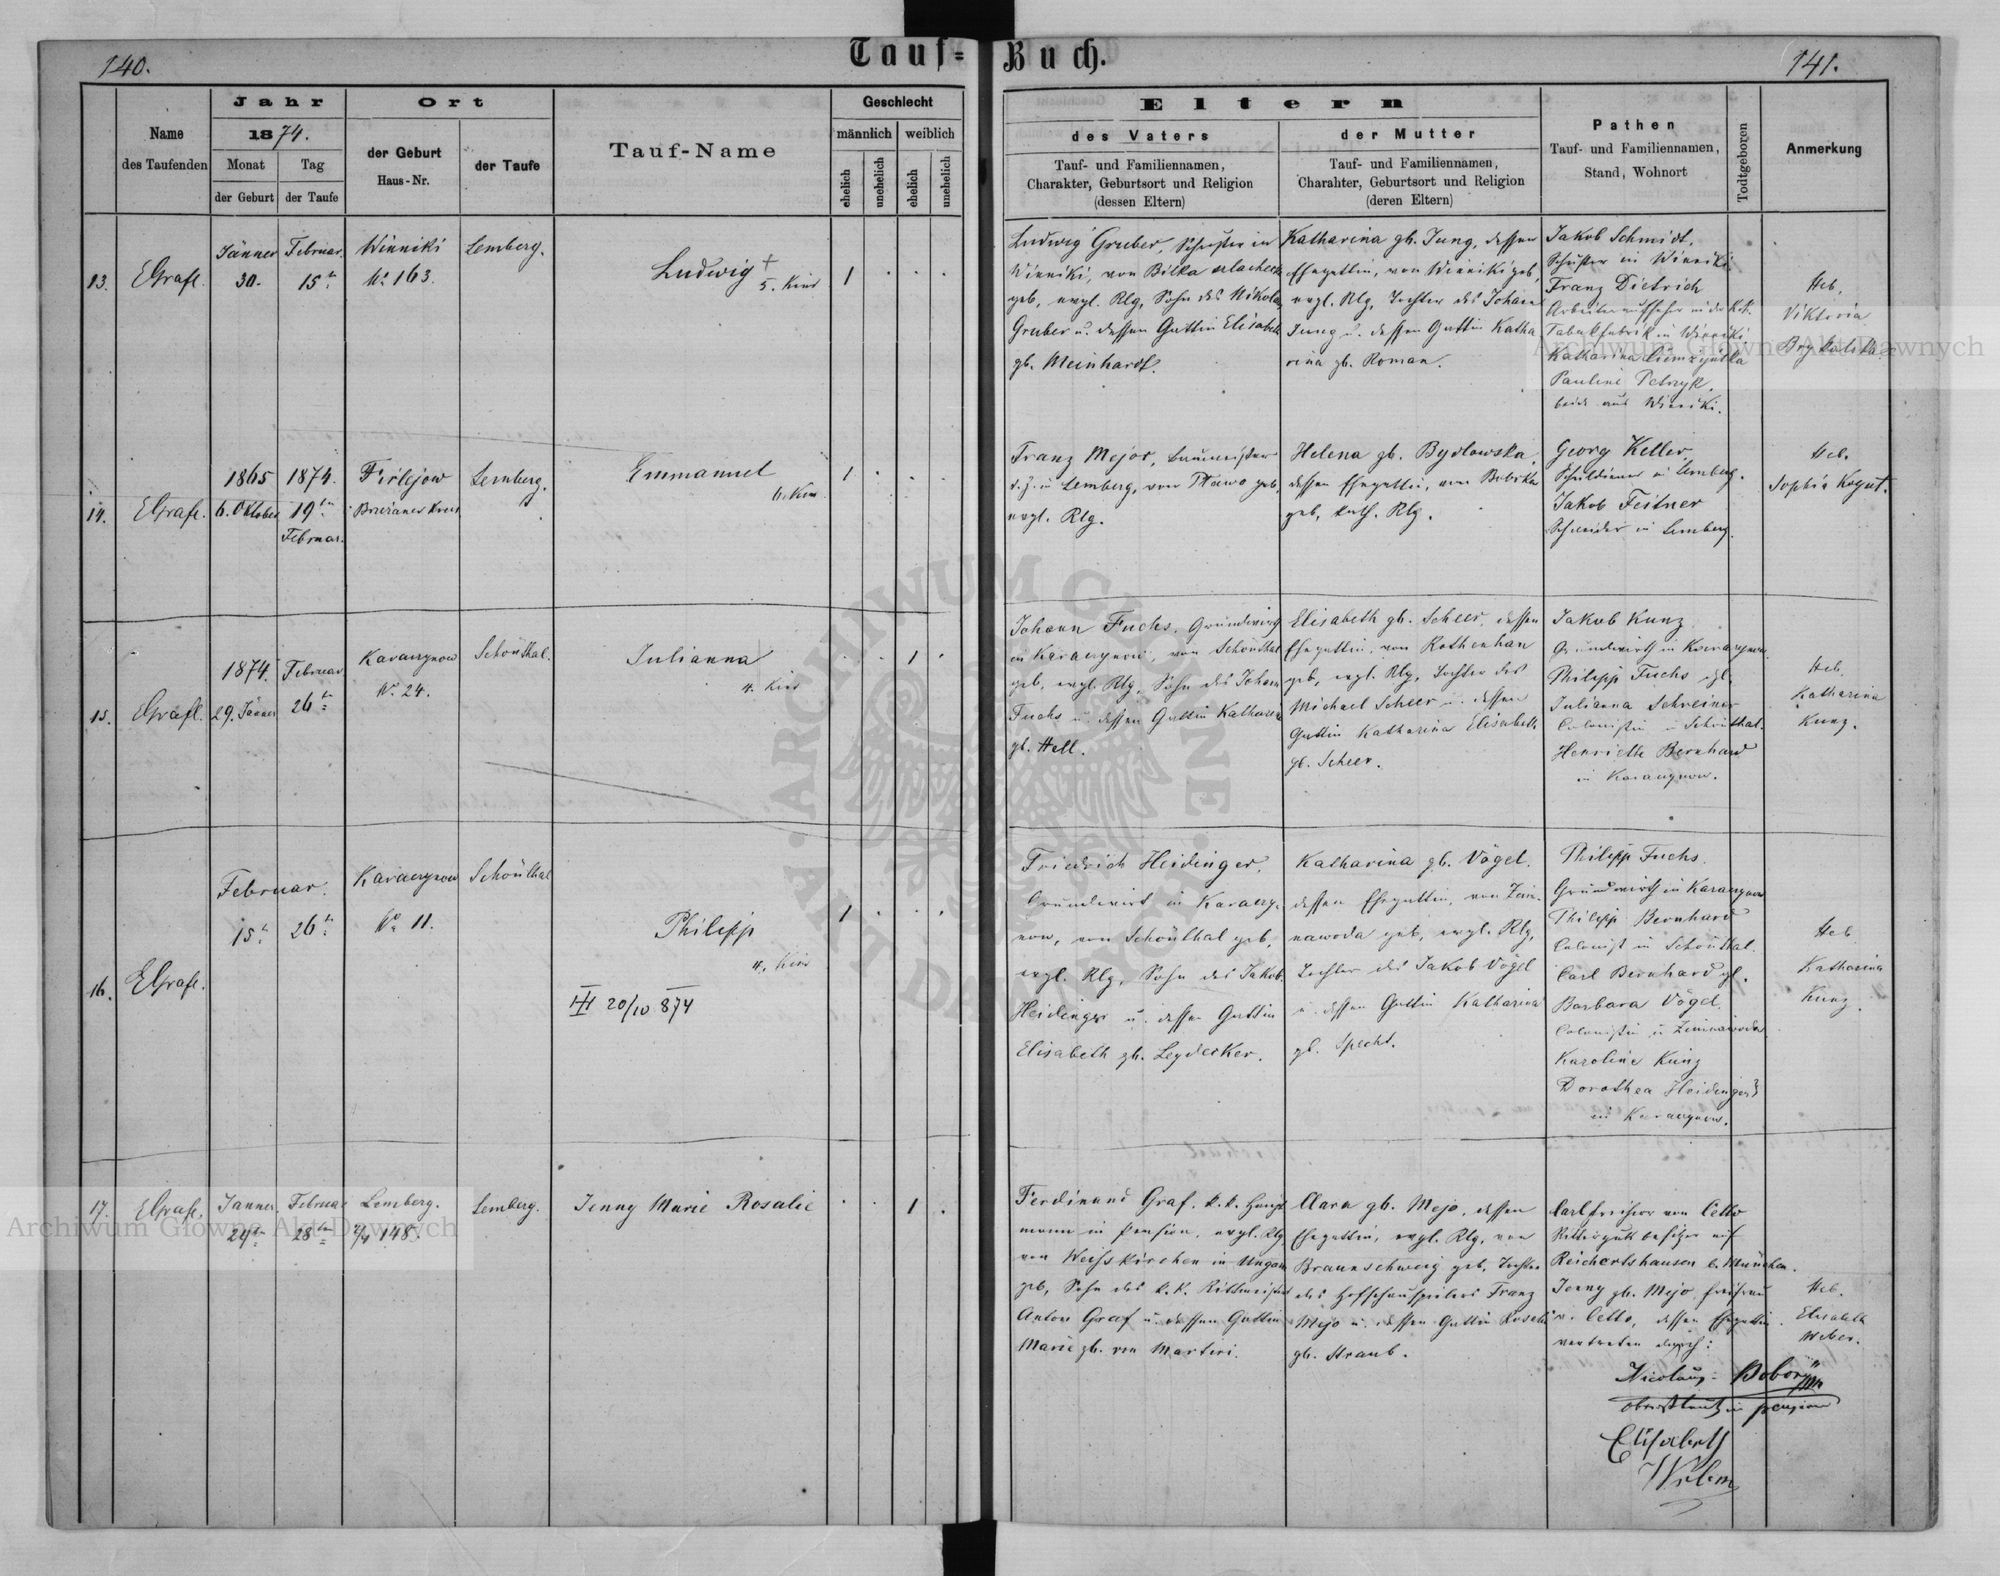 140.
Tauf=Buch.
141.
Name
des Taufenden
Jahr
1874.
Monat
Tag
der Geburt
der Taufe
Ort
der Geburt
Haus-Nr.
der Taufe
Tauf-Name
Geschlecht
männlich
weiblich
ehelich
unehelich
ehelich
unehelich
Eltern
des Vaters
Tauf- und Familiennamen,
Charakter, Geburtsort und Religion
(dessen Eltern)
der Mutter
Tauf- und Familiennamen,
Charahter, Geburtsort und Religion
(deren Eltern)
Pathen
Tauf- und Familiennamen,
Stand, Wohnort
Todtgeboren
Anmerkung
13.
EGrafl.
Jänner
30.
Februar
15
Winniki
No 163.
Lemberg.
Ludwig +
5. Kind
1
Ludwig Gruber, Schuster in
Winniki, von Bilka
geb, evgl. Rlg, Sohn des Nikolaus
Gruber u. dessen Gattin Elisabeth
gb. Meinhardt.
Katharina gb. Jung, dessen
Ehegattin, von Winniki geb,
evgl. Rlg, Tochter des Johann
Jung u. dessen Gattin Katha
rina gb. Roman.
Jakob Schmidt,
Schuster in Winniki
Franz Dietrich
Arbeiteraufseher in der k.k.
Tabakfabrik in Winniki
Katharina
Pauline Petryk,
beide aus Winniki.
Heb.
Viktoria
14.
EGrafl.
1865
6. Oktober
1874.
19
Februar.
Firlejow
Brzezaner Kreis
Lemberg.
Emmanuel
6. Kind
1
Franz Mejor, Baumeister
d. Z. in Lemberg, von geb,
evgl. Rlg.
Helena gb. Bydlowska,
dessen Ehegattin, von Bobrka
geb, kath. Rlg.
Georg Keller,
Schuldiener in Lemberg.
Jakob Feitner
Schneider in Lemberg.
Heb.
Sophia Kogut.
15.
EGrafl.
1874.
29. Jänner
Februar
26
Karaczynow
No 24.
Schönthal.
Julianna
4. Kind
1
Johann Fuchs, Grundwirth
in Karaczynow, von Schönthal
geb, evgl. Rlg, Sohn des Johann
Fuchs u. dessen Gattin Katharina
gb. Hell.
Elisabeth gb. Scheer, dessen
Ehegattin, von Rothenhan
geb, evgl. Rlg, Tochter des
Michael Scheer u. dessen
Gattin Katharina Elisabeth
gb. Scheer.
Jakob Kunz
Grundwirth in Karaczynow.
Philipp Fuchs
Julianna Schreiner
Colonistin in Schönthal.
Henriette Bernhard
in Karaczynow.
Heb.
Katharina
Kunz.
16.
EGrafl.
Februar.
15
26
Karaczynow
No 11.
Schönthal
Philipp
4. Kind
20/10 874
1
Friedrich Heidinger,
Grundwirt in Karaczy-
now, von Schönthal geb,
evgl. Rlg, Sohn des Jakob
Heidinger u. dessen Gattin
Elisabeth gb. Leydecker.
Katharina gb. Vögel.
dessen Ehegattin, von Zim-
nawoda geb, evgl. Rlg,
Tochter des Jakob Vögel
u. dessen Gattin Katharina
gb. Specht.
Philipp Fuchs.
Grundwirth in Karaczynow
Philipp Bernhard
Colonist in Schönthal.
Carl Bernhard
Barbara Vögel
Colonistin in Zimnawoda
Karoline Kunz
Dorothea Heidinger
in Karaczynow.
Heb
Katharina
Kunz.
17.
EGrafl.
Jänner
24
Februar
28
Lemberg.
2/4 148.
Lemberg.
Jenny Marie Rosalie
1
Ferdinand Graf, k.k. Haupt
mann in Pension, evgl. Rlg,
von Weisskirchen in Ungarn
geb, Sohn des k.k. Rittmeisters
Anton Graf u. dessen Gattin
Marie gb. von Martini.
Clara gb. Mejo, dessen
Ehegattin, evgl. Rlg, von
Braunschweig geb, Tochter
des Hofschauspielers Franz
Mejo u. dessen Gattin Rosalie
gb. Straub.
Carl Freiherr von Cetto
Rittergutsbesitzer auf
Reichertshausen b. München.
Jenny gb. Mejo, Freifrau
v. Cetto, dessen Ehegattin.
vertreten durch:
Nicolaus
in Pension
Elisabeth
Heb.
Elisabeth
Weber.
ARCHIWUM GŁÓWNE AKT DAWNYCH
Archiwum Główne Akt Dawnych
Archiwum Główne Akt Dawnych